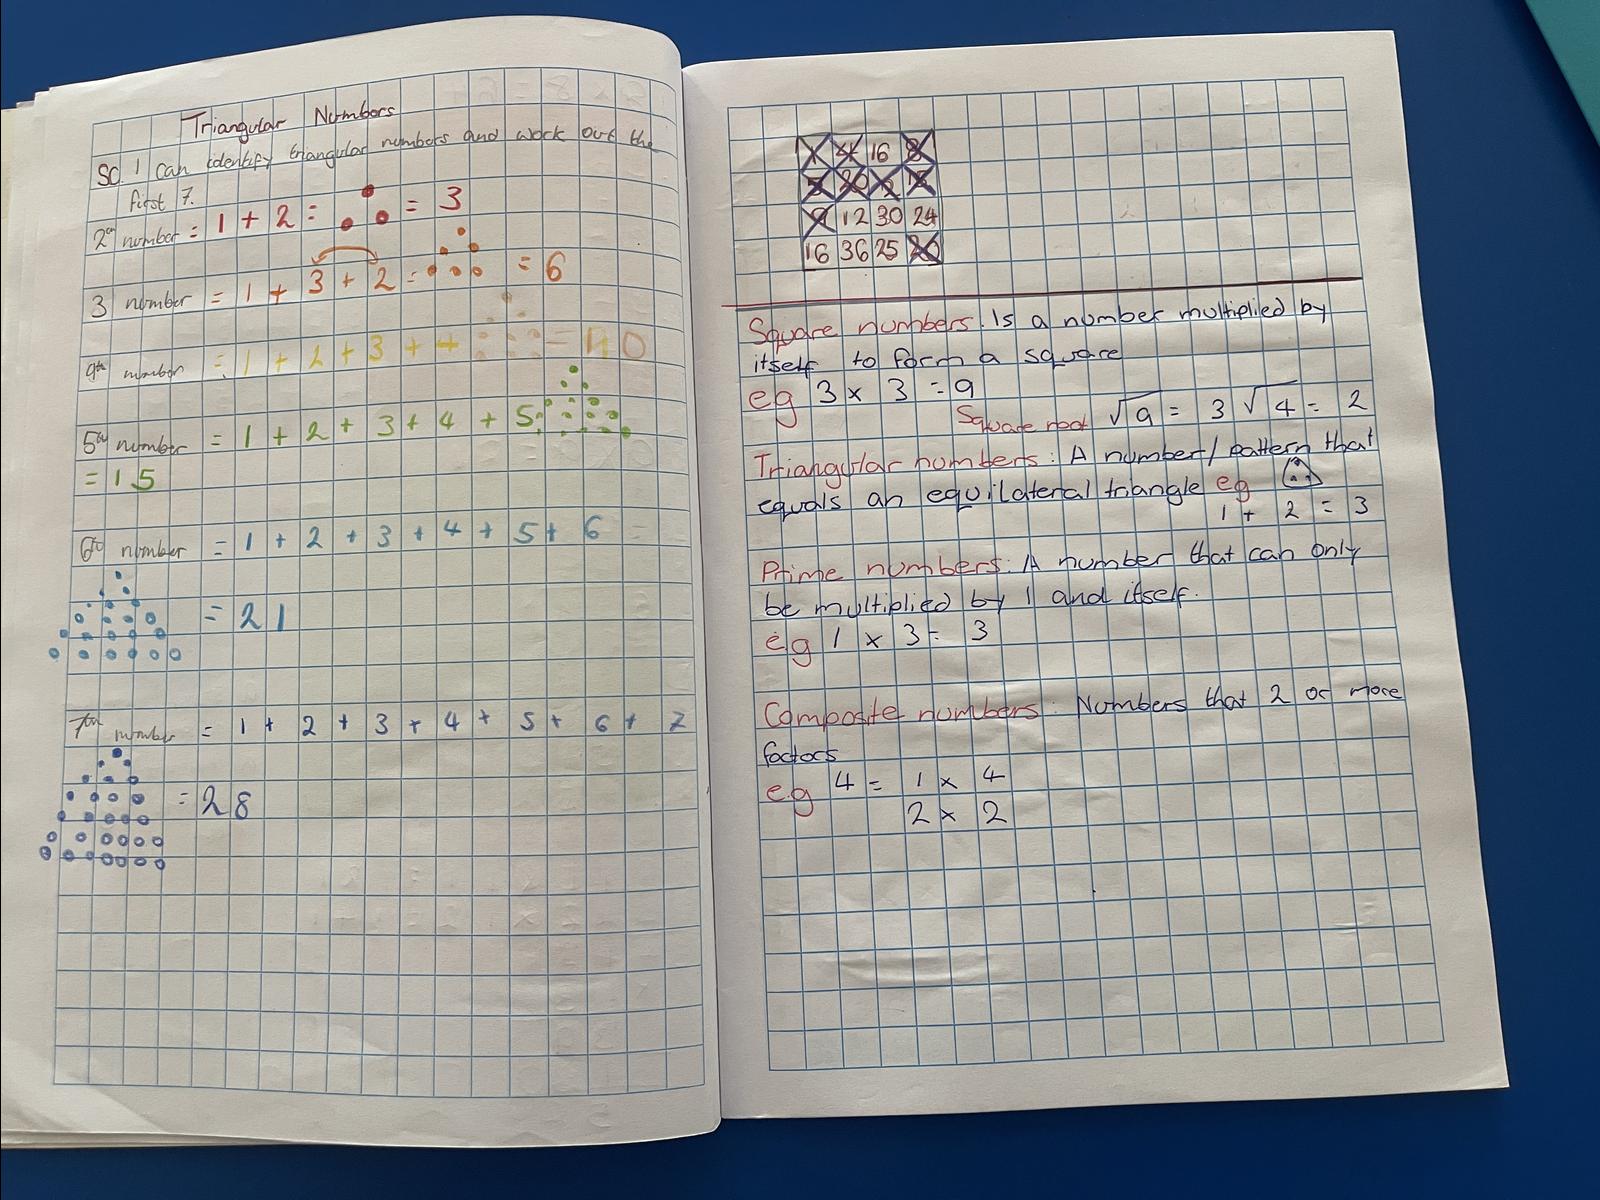 Triangular Numbers
SC I can identify triangular numbers and work out the
first 7.
2nd number = 1 + 2 = = 3
3 number = 1 + 3 + 2 = = 6
4th number = 1 + 2 + 3 + 4 = 10
5th number = 1 + 2 + 3 + 4 + 5 =
= 15
6th number = 1 + 2 + 3 + 4 + 5 + 6
= 21
7th number = 1 + 2 + 3 + 4 + 5 + 6 + 7
= 28
16
12 30 24
16 36 25
Square numbers: Is a number multiplied by
itself to form a square
eg 3 x 3 = 9
Square root √9 = 3 √4 = 2
Triangular numbers: A number/pattern that
equals an equilateral triangle eg
1 + 2 = 3
Prime numbers: A number that can only
be multiplied by 1 and itself.
eg 1 x 3 = 3
Composite numbers: Numbers that 2 or more
factors
e.g 4 = 1 x 4
2 x 2